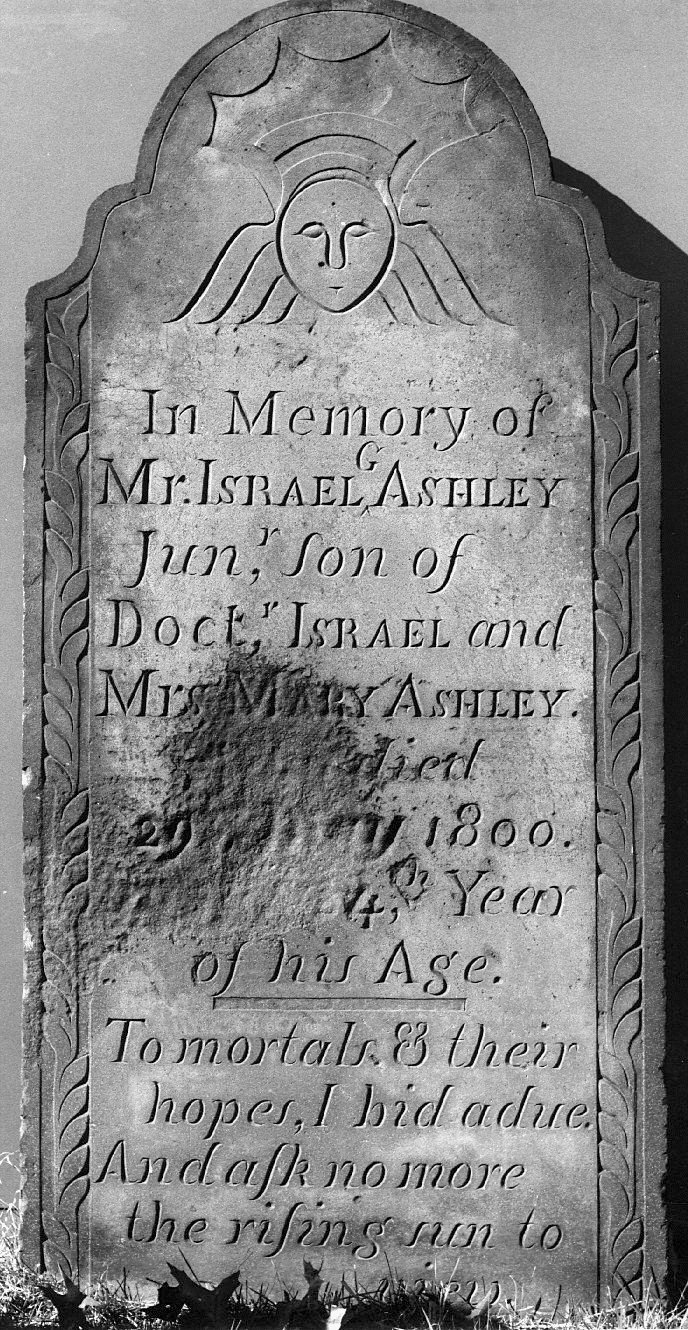 In Memory of
Mr. ISRAEL G ASHLEY
Junr, ſon of
Doctr, ISRAEL and
MRS MARY ASHLEY.
died
29 1800.
4th Year
of his Age.
To mortals, & their
hopes, I bid adue.
And aſk no more
the riſing sun to
view.